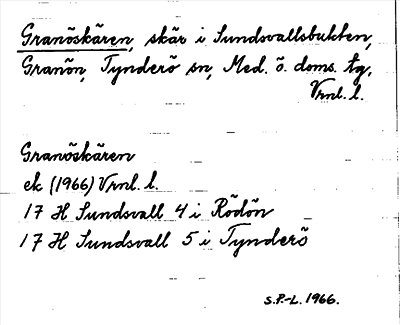 Granöskären, skär i Sundsvallsbukten,
Granön, Tynderö sn, Med. ö. doms. tg,
Vrnl. l.
Granöskären
ek (1966) Vrnl. l.
17 H Sundsvall 4 i Rödön
17 H Sundsvall 5 i Tynderö
S.P.-L. 1966.